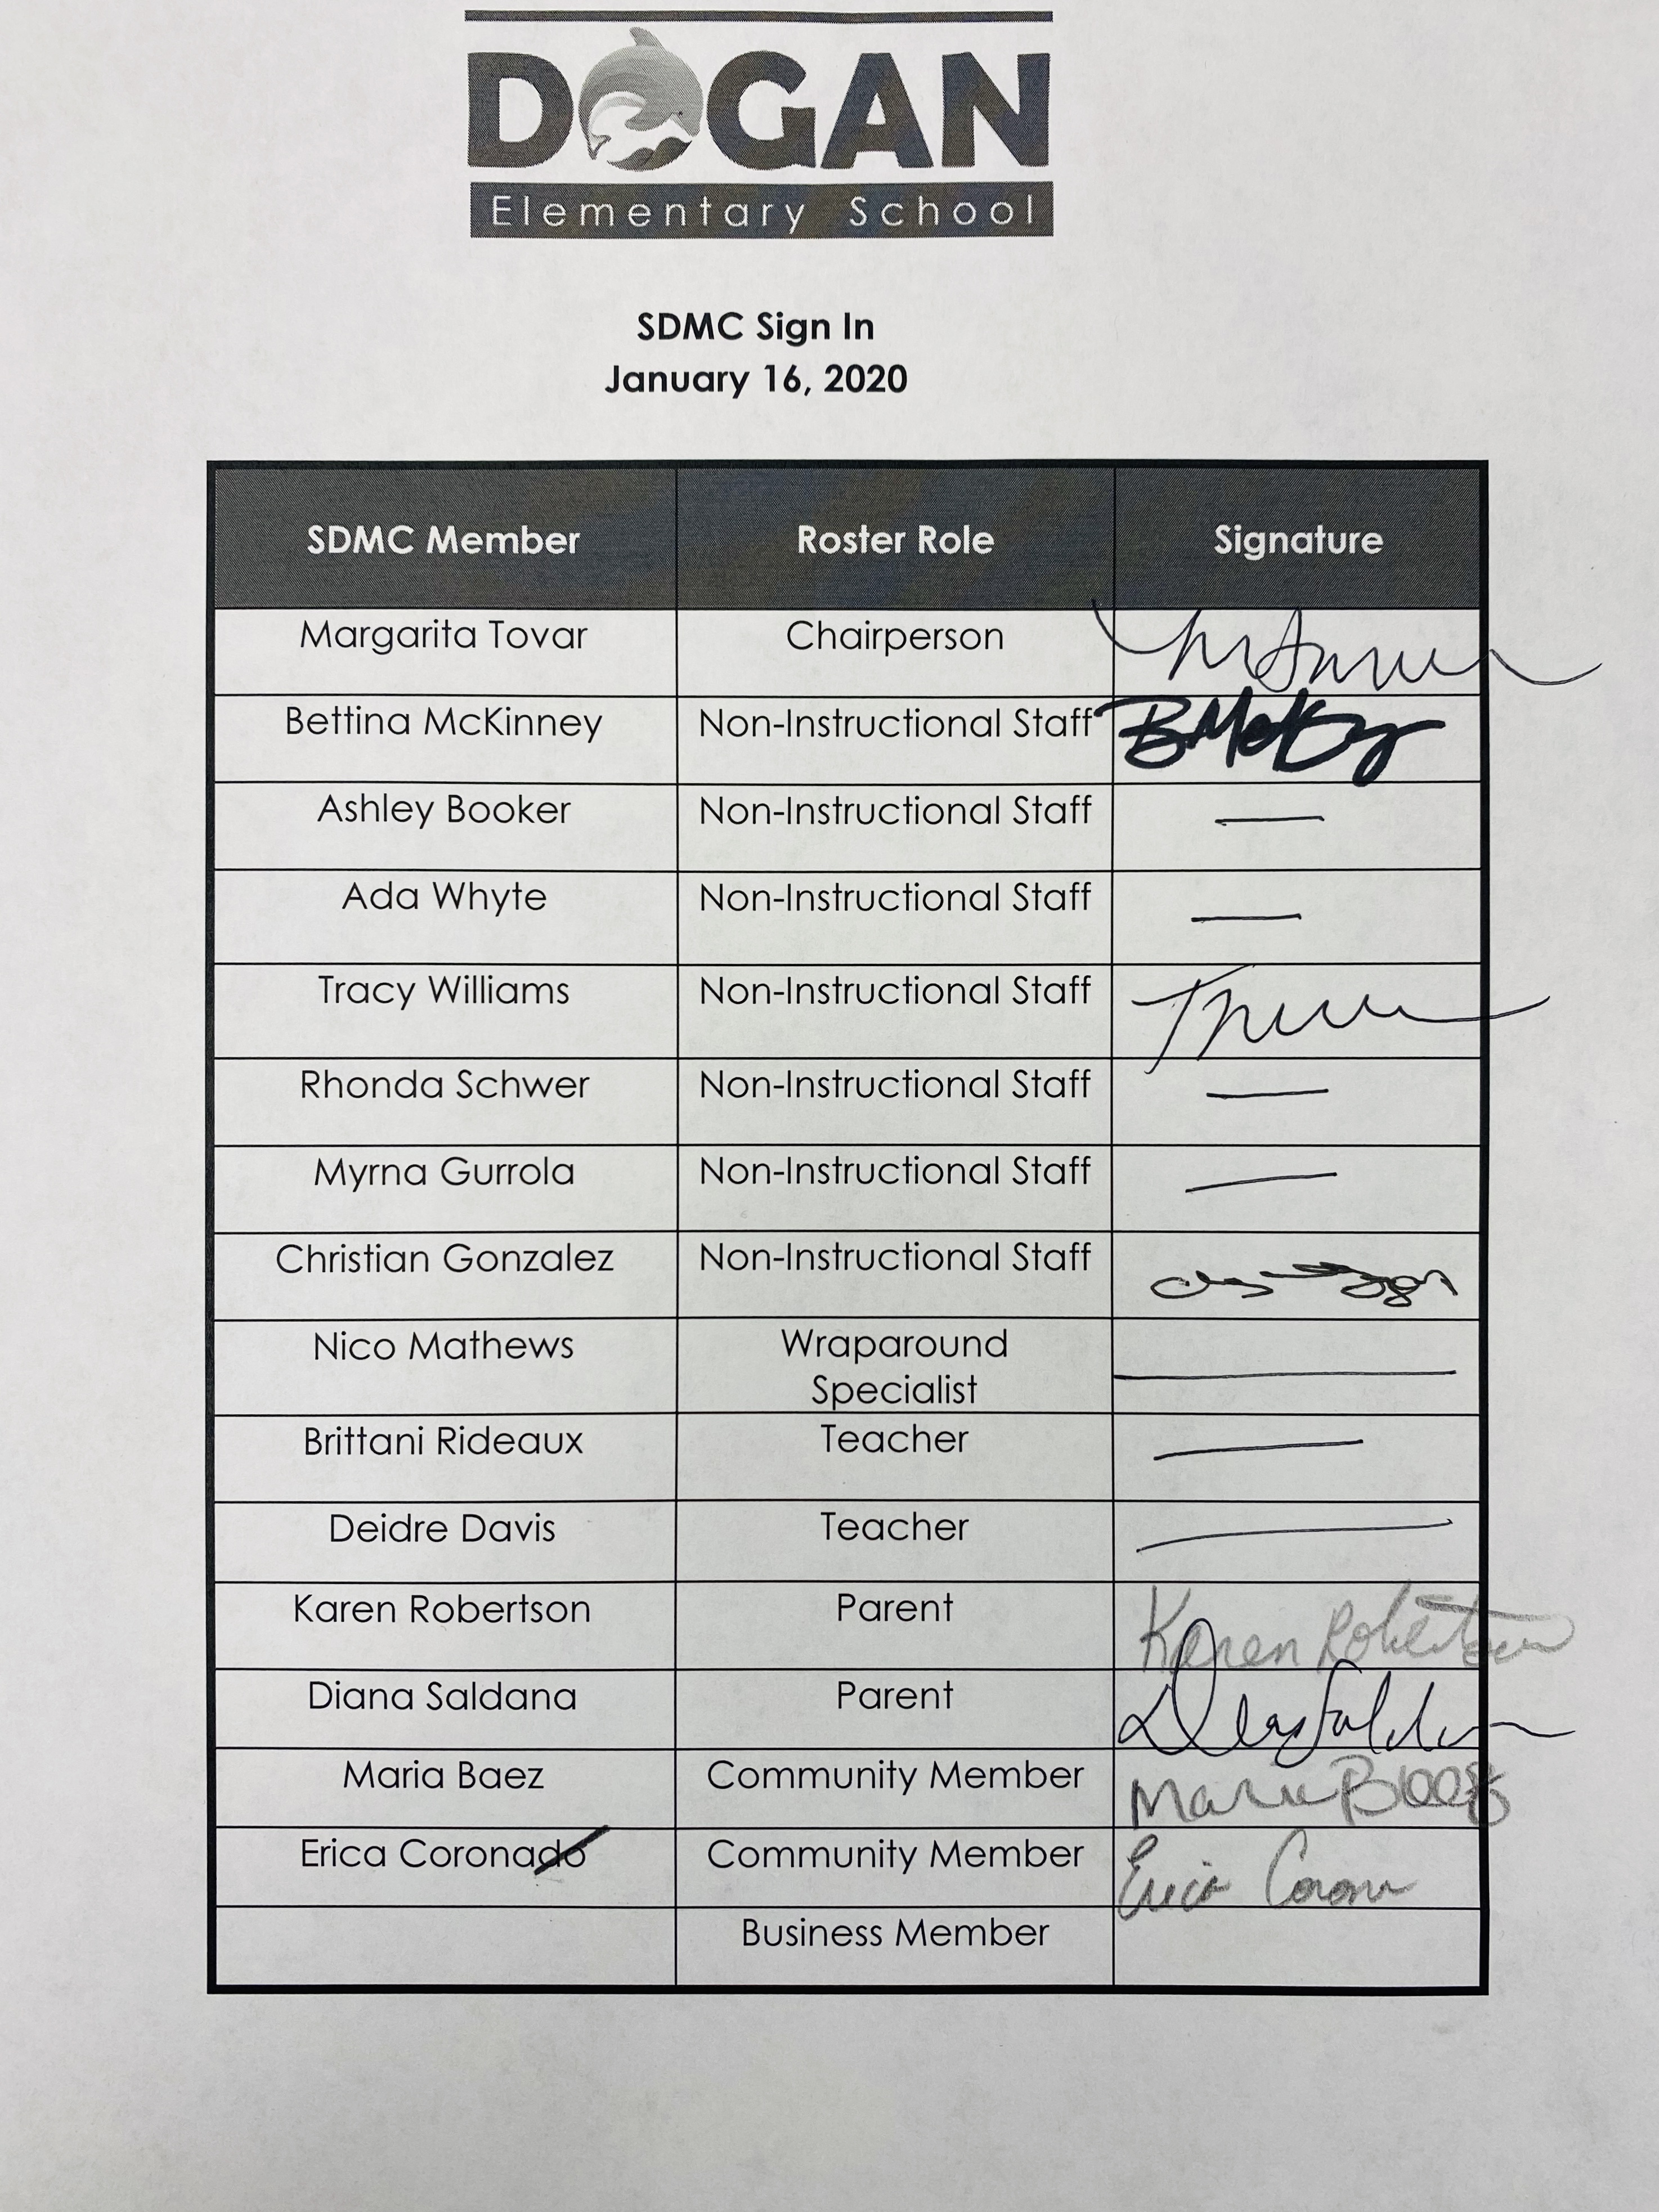 DOGAN
Elementary School
SDMC Sign In
January 16, 2020
SDMC Member Roster Role Signature
Margarita Tovar Chairperson
Bettina McKinney Non-Instructional Staff
Ashley Booker Non-Instructional Staff —
Ada Whyte Non-Instructional Staff —
Tracy Williams Non-Instructional Staff
Rhonda Schwer Non-Instructional Staff —
Myrna Gurrola Non-Instructional Staff —
Christian Gonzalez Non-Instructional Staff
Nico Mathews Wraparound —
Specialist
Brittani Rideaux Teacher —
Deidre Davis Teacher —
Karen Robertson Parent Karen Robertson
Diana Saldana Parent
Maria Baez Community Member Maria Baez
Erica Coronado Community Member Erica Corona
Business Member